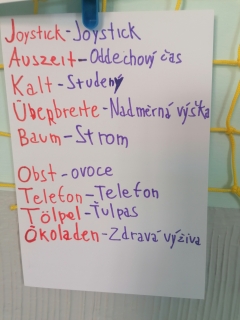 Joystick-Joystick
Auszeit-Oddechový čas
Kalt-Studený
Überbreite-Nadměrná výška
Baum-Strom
Obst-ovoce
Telefon-Telefon
Tölpel-Ťulpas
Ökoladen-Zdravá výživa